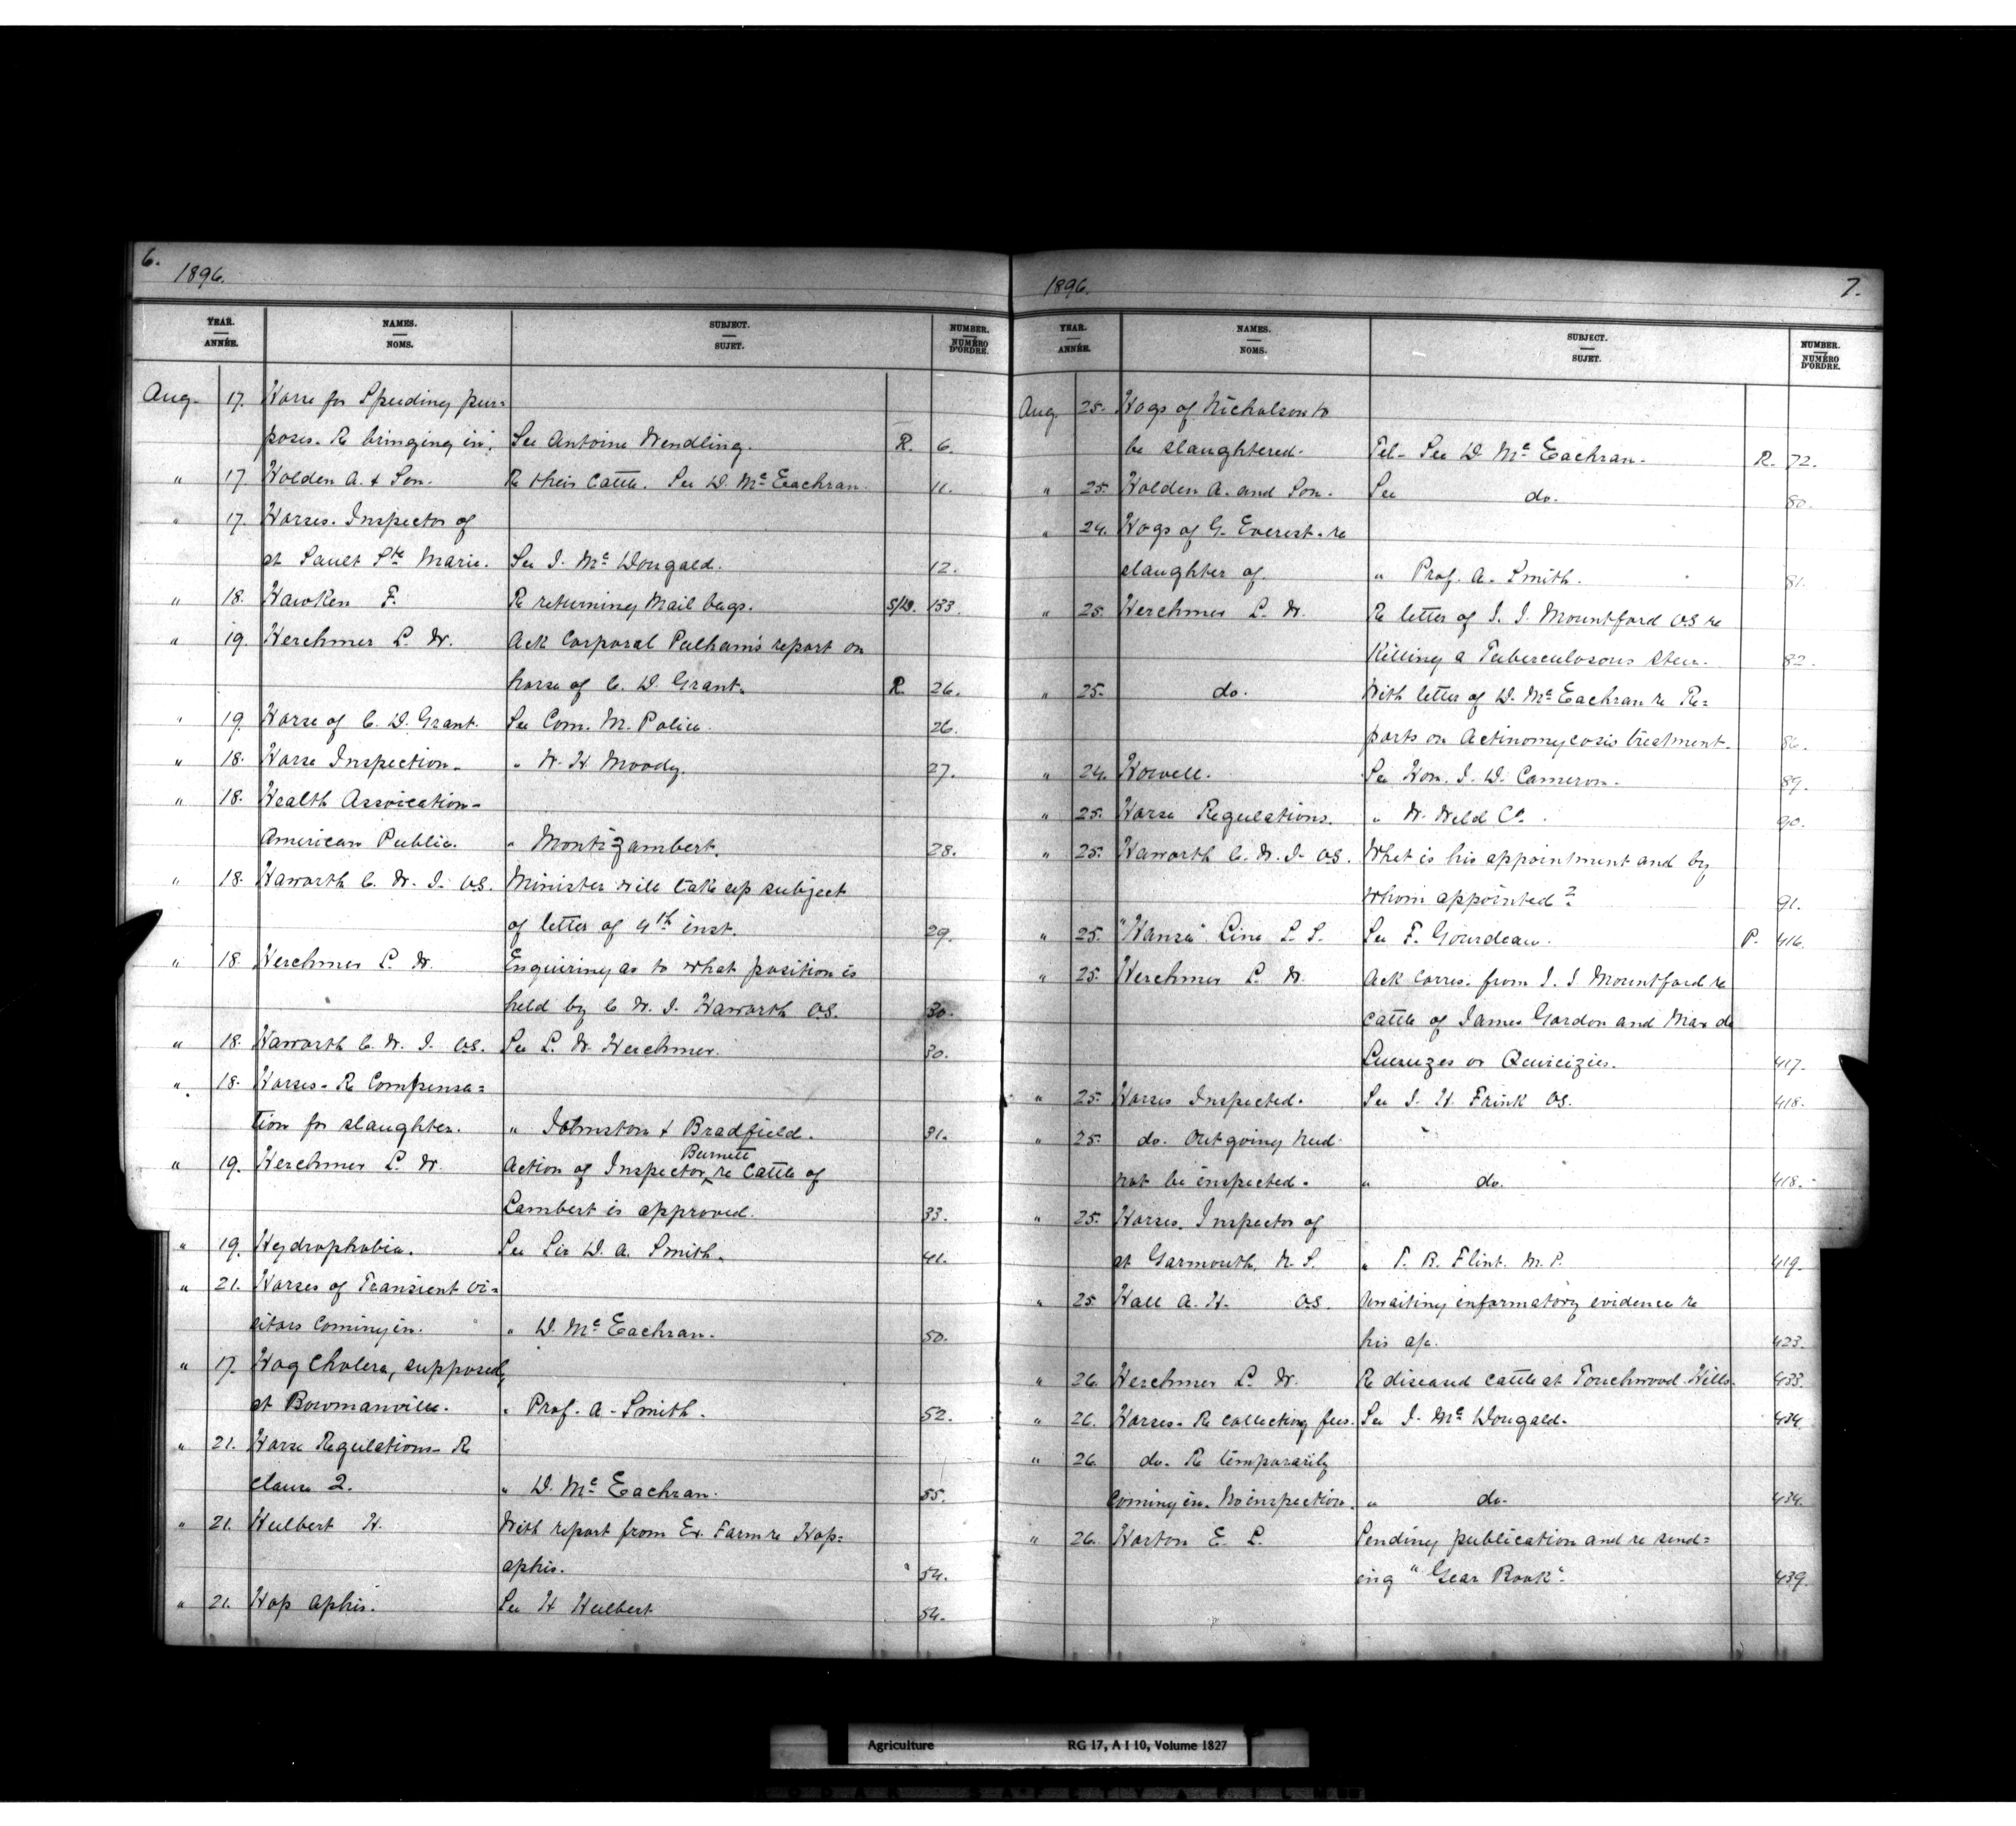 6.
1896.
YEAR. ANNÉE. NAMES. NOMS. SUBJECT. SUJET. NUMBER. NUMÉRO D'ORDRE.
Aug. 17. Horse for Speeding pur=
poses. Re bringing in. See Antoine Wendling. R. 6.
" 17. Holden A. & Son. Re their Cattle. See D. McEachran. 11.
" 17. Horses. Inspector of
at Sault Ste Marie. See J. McDougald. 12.
" 18. Hawken F. Re returning Mail bags. S/B. 133.
" 19. Herchmer L. W. Ack Corporal Pelham's report on
horse of C. D. Grant. R. 26.
" 19. Horse of C. D. Grant. See Com. M. Police. 26.
" 18. Horse Inspection. " W. H. Moody. 27.
" 18. Health Association-
American Public. " Montizambert. 28.
" 18. Haworth C. W. J. VS. Minister will take up subject
of letter of 4th inst. 29.
" 18. Herchmer L. W. Enquiring as to what position is
held by C. W. J. Haworth VS. 30.
" 18. Haworth C. W. J. VS. See L. W. Herchmer. 30.
" 18. Horses- Re Compensa=
tion for slaughter. " Johnston & Bradfield. 31.
" 19. Herchmer L. W. Action of Inspector Burnett re Cattle of
Lambert is approved. 33.
" 19. Hydrophobia. See Sir D. A. Smith. 41.
" 21. Horses of Transient Vi=
sitors Coming in. " D. McEachran. 50.
" 17. Hog Cholera, supposed,
at Bowmanville. " Prof. A. Smith. 52.
" 21. Horse Regulations- Re
clause 2. " D. McEachran. 55.
" 21. Hulbert H. With report from Ex. Farm re Hop=
aphis. 54.
" 21. Hop Aphis. See H Hulbert 54.
1896. 7.
YEAR. ANNÉE. NAMES. NOMS. SUBJECT. SUJET. NUMBER. NUMÉRO D'ORDRE.
Aug. 25. Hogs of Nicholson to
be slaughtered. Tel- See D. McEachran. R. 72.
" 25. Holden A. and Son. See do. 80.
" 24. Hogs of G. Everest. re
slaughter of. " Prof. A. Smith. 81.
" 25. Herchmer L. W. Re letter of J. J. Mountford VS re
Killing a Tuberculosous Steer. 82.
" 25. do. With letter of D. McEachran re Re=
ports on Actinomycosis treatment. 86.
" 24. Howell. See Hon. J. D. Cameron. 89.
" 25. Horse Regulations. " W. Weld Co. 90.
" 25. Haworth C. W. J. VS. What is his appointment and by
whom appointed? 91.
" 25. "Hansa" Line S. S. See F. Gourdeau. P. 416.
" 25. Herchmer L. W. Ack Corres. from J. J Mountford re
Cattle of James Gordon and Max de
417.
" 25. Horses Inspected. See J. H. Frink VS. 418.
" 25. do. Outgoing need
not be inspected. " do. 418.
" 25. Horses. Inspector of
at Yarmouth, N. S. " T. B. Flint. M. P. 419.
" 25 Hall A. H. VS. Awaiting informatory evidence re
his a/c. 423.
" 26. Herchmer L. W. Re diseased Cattle at Touchwood Hills. 433.
" 26. Horses- Re collecting fees. See J. McDougald. 434.
" 26. do. Re temporarily
Coming in. No inspection. " do. 434.
" 26. Horton E. L. Sending publication and re send=
ing "Year Book". 439.
Agriculture RG 17, A I 10, Volume 1827